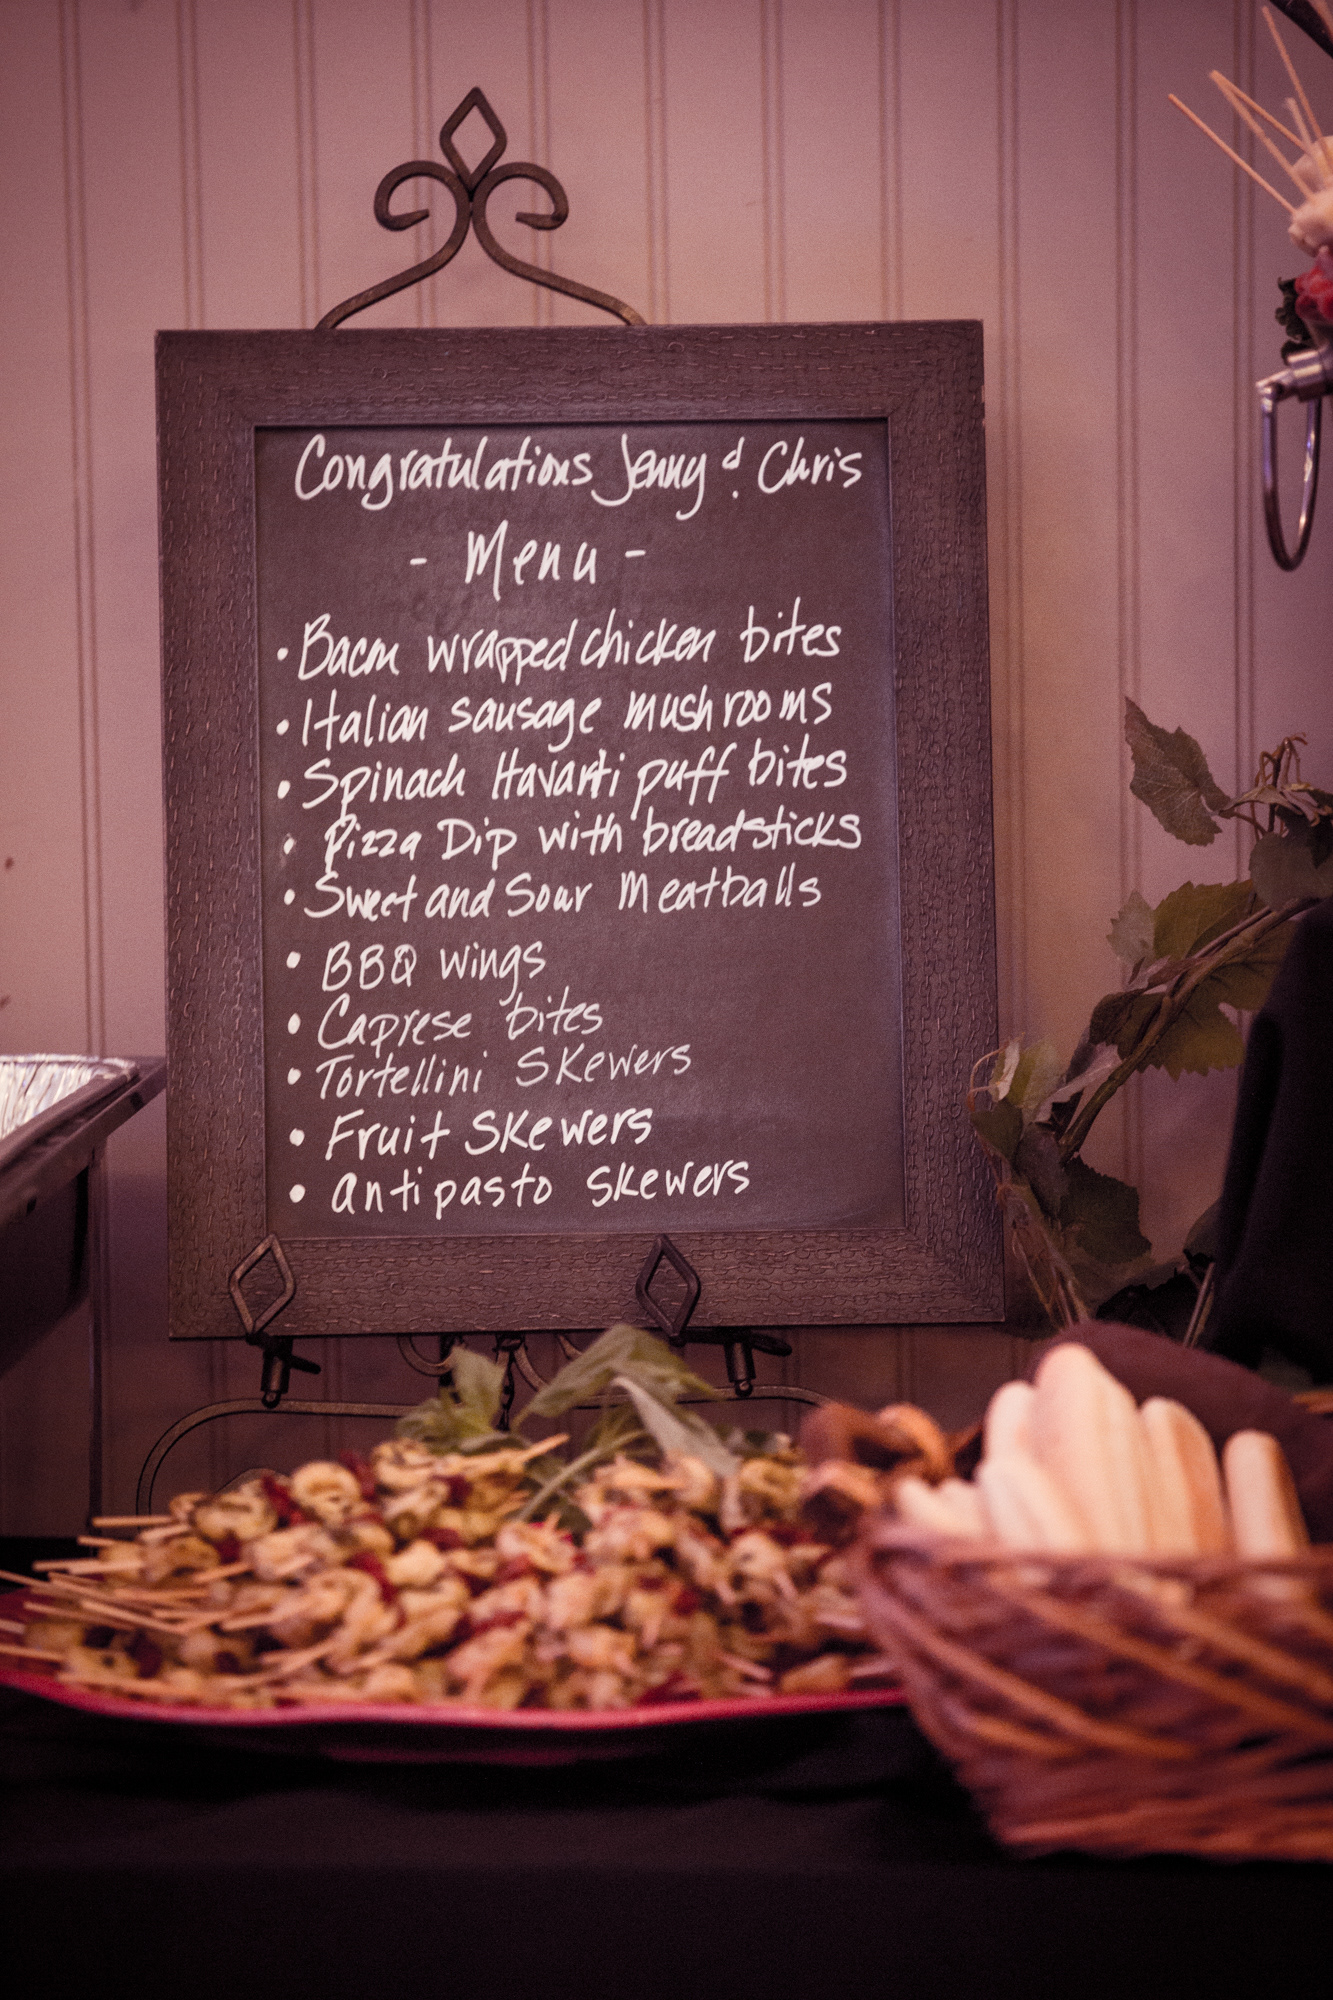 Congratulations Jenny & Chris
- Menu -
• Bacon wrapped chicken bites
• Italian sausage mushrooms
• Spinach Havarti puff bites
• Pizza Dip with breadsticks
• Sweet and Sour Meatballs
• BBQ wings
• Caprese bites
• Tortellini Skewers
• Fruit Skewers
• antipasto skewers